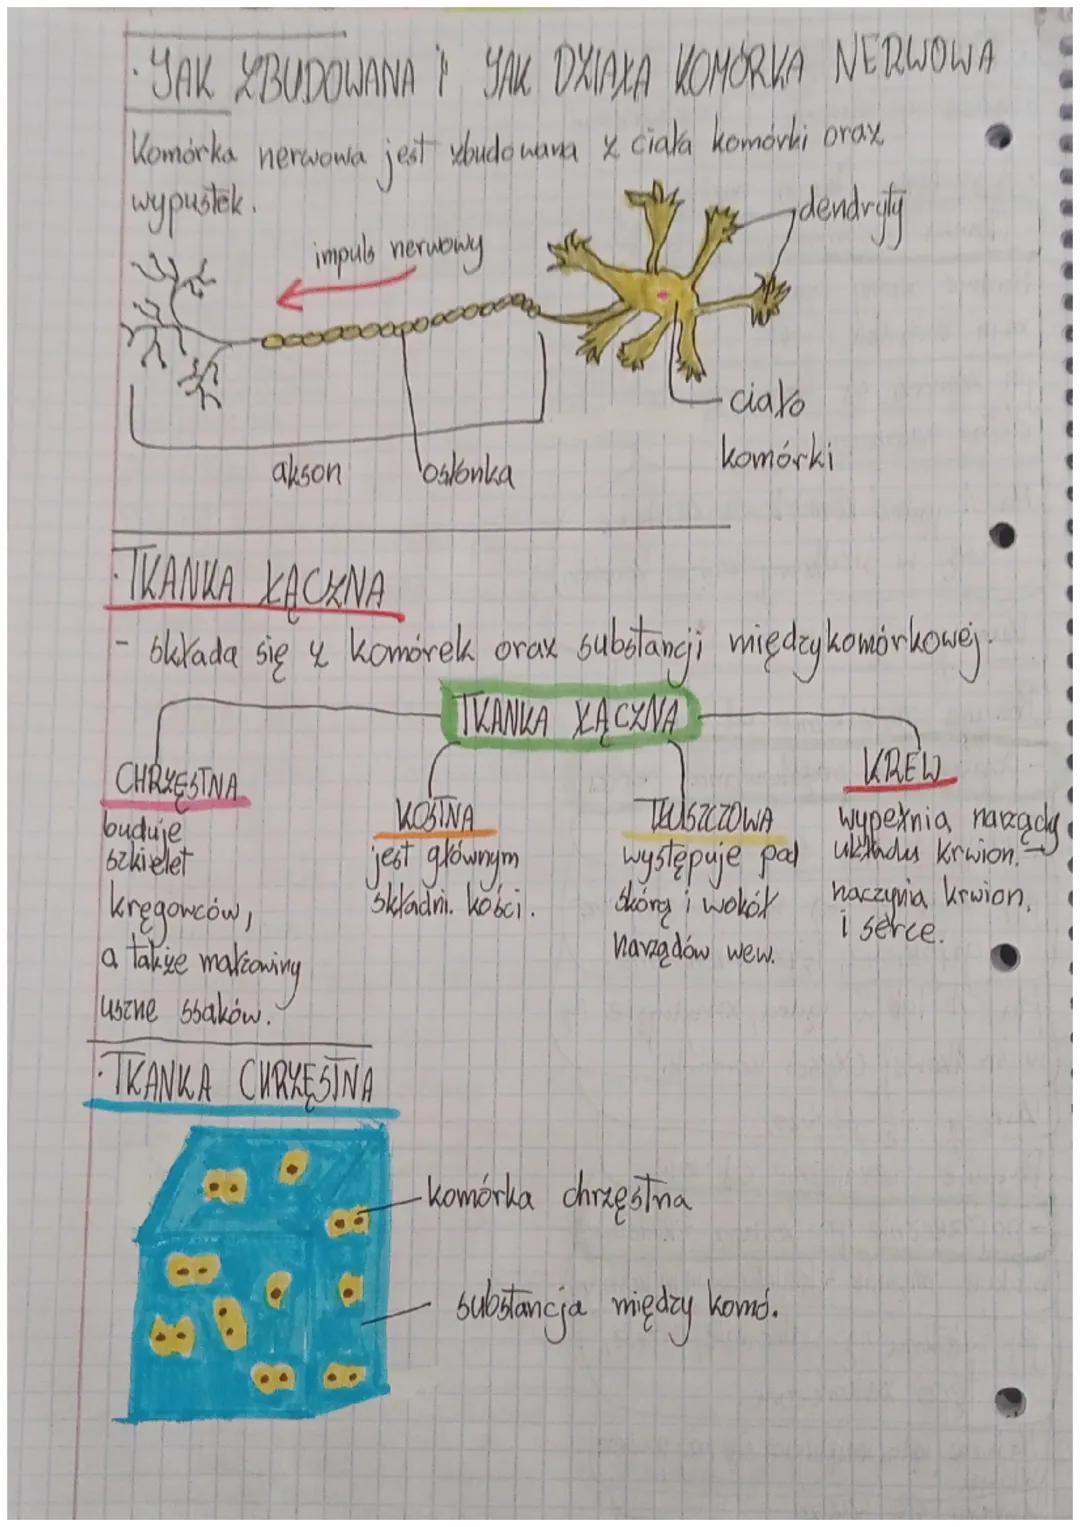 · JAK ZBUDOWANA i JAK DZIAŁA KOMÓRKA NERWOWA
Komórka nerwowa jest zbudowana z ciała komórki oraz
wypustek.
dendryty
impuls nerwowy
ciało
komórki
akson
osłonka
· TKANKA ŁĄCZNA
- składa się z komórek oraz substancji międzykomórkowej.
TKANKA ŁĄCZNA
CHRZĘSTNA
buduje
szkielet
kręgowców,
a także małżowiny
uszne ssaków.
KOSTNA
jest głównym
składni. kości.
TŁUSZCZOWA
występuje pod
skórą i wokół
narządów wew.
KREW
wypełnia narządy
układu krwion. →
naczynia krwion.
i serce.
· TKANKA CHRZĘSTNA
komórka chrzęstna
substancja między komó.